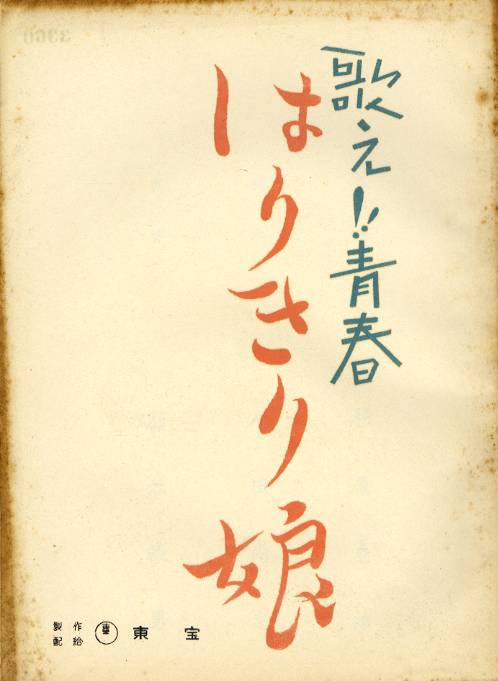 歌え!!青春
はりきり娘
製作
配給
東宝